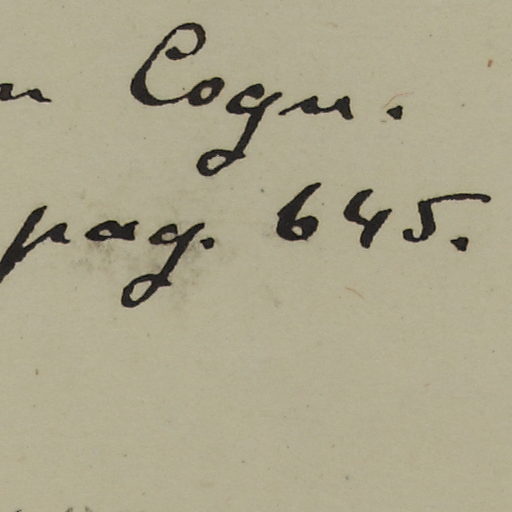 Cogn.
pag. 645.